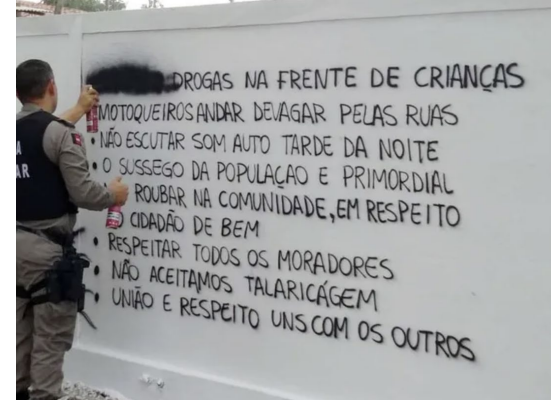 DROGAS NA FRENTE DE CRIANÇAS
MOTOQUEIROS ANDAR DEVAGAR PELAS RUAS
• NÃO ESCUTAR SOM AUTO TARDE DA NOITE
• O SUSSEGO DA POPULAÇÃO E PRIMORDIAL
ROUBAR NA COMUNIDADE, EM RESPEITO
CIDADÃO DE BEM
• RESPEITAR TODOS OS MORADORES
• NÃO ACEITAMOS TALARICÁGEM
• UNIÃO E RESPEITO UNS COM OS OUTROS